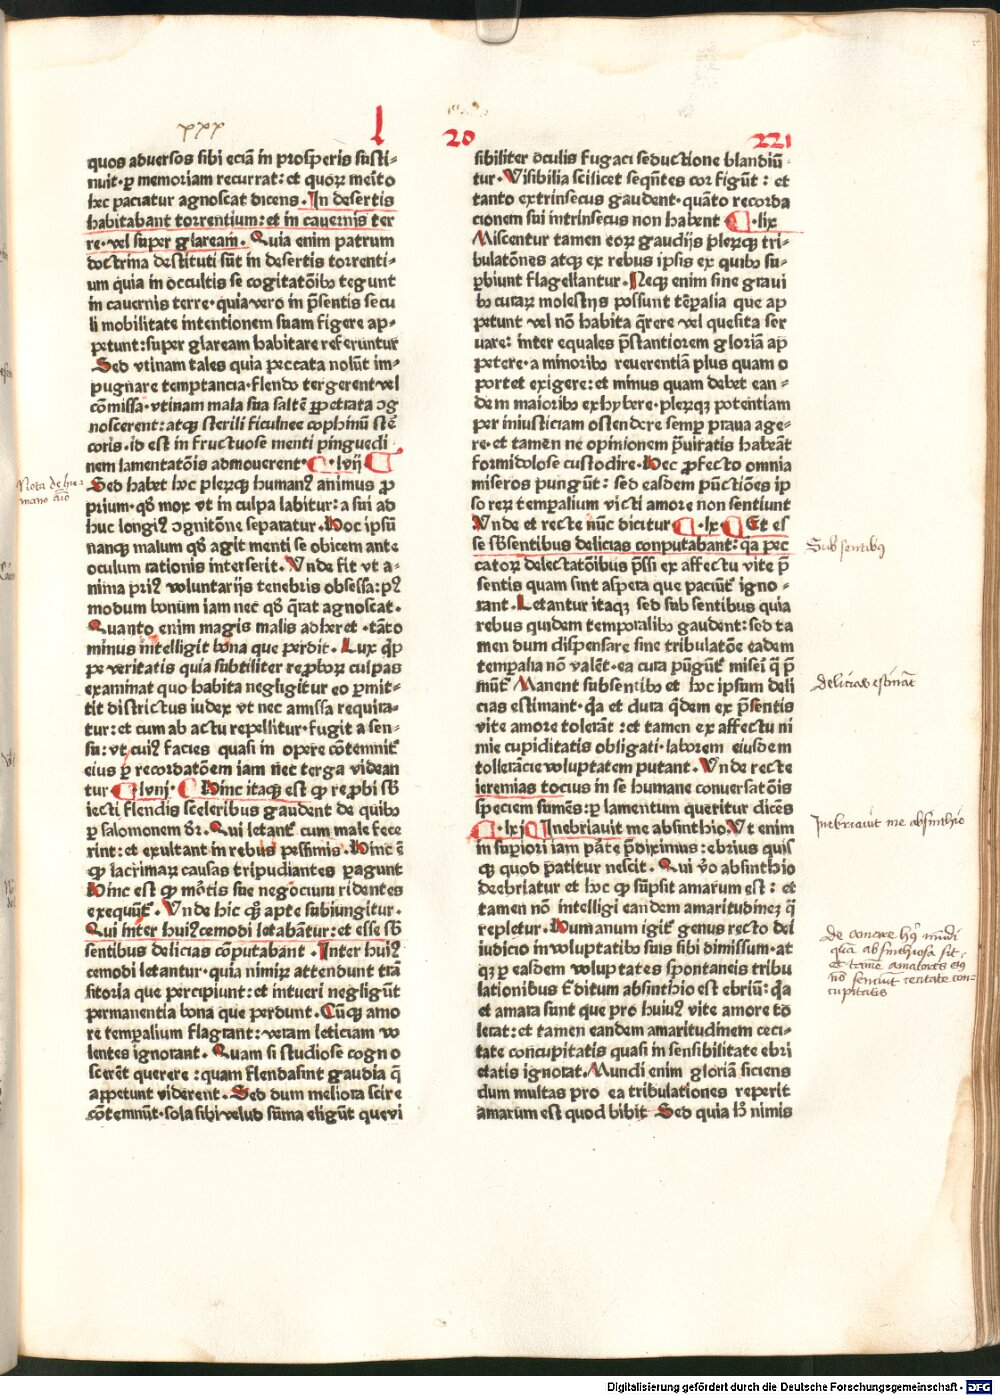 xxx
l
20
221
quos aduersos sibi eciã in prosperis susti⸗
nuit·ꝑ memoriam recurrat: et quoꝝ mei̇to
hec paciatur agnoscat dicens·In desertis
habitabant torrentium: et in cauernis ter
re·vel super glaream· Quia enim patrum
doctrina destituti sũt in desertis torrenti⸗
um quia in occultis se cogitatõibꝰ tegunt
in cauernis terre·quia vero in p̃sentis secu
li mobilitate intentionem suam figere ap⸗
petunt: super glaream habitare referuntur
Sed vtinam tales quia peccata nolũt im⸗
pugnare temptancia·flendo tergerent·vel
cõmissa·vtinam mala sua saltẽ ꝑpetrata ꝯg
noscerent: atqꝫ sterili ficulnee cophinũ stẽ
coris·id est in fructuose menti pinguedi
nem lamentatõis admouerent·lvij
Sed habet hoc pleꝛqꝫ humanꝰ animus ꝓ
prium·qđ mox vt in culpa labitur: a sui ad
huc longiꝰ ꝯgnitõne separatur·Hoc ipsũ
nanqꝫ malum qđ agit menti se obicem ante
oculum rationis interserit·Vnde fit vt a⸗
nima priꝰ voluntarijs tenebris obsessa: pꝰ
modum bonum iam nec qđ q̃rat agnoscat·
Quanto enim magis malis adheret·tãto
minus intelligit bona que perdit·Lux q̃ꝑ
pe veritatis quia subtiliter reꝓboꝝ culpas
examinat quo habita negligitur eo ꝑmit⸗
tit districtus iudex vt nec amissa requira⸗
tur: et cum ab actu repellitur·fugit a sen⸗
su: vt cuiꝰ facies quasi in opere cõtemnit̃
eius ꝑ recordatõem iam nec terga videan
tur·lviij·Hinc itaqꝫ est ꝙ reꝓbi sb̃
iecti flendis sceleribus gaudent de quibꝰ
ꝑ salomonem dr̃·Qui letant̃ cum male fece
rint: et exultant in rebus pessimis·Hinc ẽ
ꝙ lacrimaꝝ causas tripudiantes ꝑagunt
Hinc est ꝙ mõtis sue negocium ridentes
exequũt̃·Vnde hic qꝫ apte subiungitur·
Qui inter huiꝰcemodi letabãtur: et esse sb̃
sentibus delicias cõputabant·Inter huiꝰ
cemodi letantur·quia nimiꝝ attendunt trã
sitoria que percipiunt: et intueri negligũt
permanentia bona que perdunt·Cũqꝫ amo
re tempalium flagrant: veram leticiam vo
lentes ignorant·Quam si studiose cogno
scerẽt querere: quam flenda sint gaudia q̃
appetunt viderent·Sed dum meliora scire
cõtemnũt·sola sibi velud sũma eligũt quevi
sibiliter oculis fugaci seductione blandiũ⸗
tur·Visibilia scilicet seq̃ntes cor figũt: et
tanto extrinsecus gaudent·quãto recorda
cionem sui intrinsecus non habent·lix
Miscentur tamen eoꝝ gaudijs pleꝛqꝫ tri⸗
bulatõnes atqꝫ ex rebus ipsis ex quibꝰ su⸗
ꝑbiunt flagellantur·Neqꝫ enim sine graui
bꝰ curaꝝ molestijs possunt tẽpalia que ap
petunt vel nõ habita q̃rere vel quesita ser
uare: inter equales p̃stantiorem gloriã ap
petere·a minoribꝰ reuerentiã plus quam o
portet exigere: et minus quam debet ean⸗
dem maioribꝰ exhybere·pleꝛqꝫ potentiam
per iniusticiam ostendere semꝑ praua age⸗
re·et tamen ne opinionem p̃uitatis habeãt
formidolose custodire·Hec ꝓfecto omnia
miseros pungũt: sed easdem pũctiões ip
so reꝝ tempalium victi amore non sentiunt
Vnde et recte nũc dicitur·lx·Et es
se sb̃sentibus delicias conputabant: qa pec
catoꝝ delectatõibus p̃ssi ex affectu vite p̃
sentis quam sint aspera que paciunt̃ igno⸗
rant·Letantur itaqꝫ sed sub sentibus quia
rebus quidem temporalibꝰ gaudent: sed ta
men dum dispensare sine tribulatõe eadem
tempalia nõ valẽt·ea cura pũgũt̃ misei̇ q̃ p̃
mũt̃ Manent subsentibꝰ et hoc ipsum deli
cias estimant·qa et dura q̃dem ex p̃sentis
vite amore tolerãt: et tamen ex affectu ni
mie cupiditatis obligati·laborem eiusdem
tollerãcie voluptatem putant·Vnde recte
ieremias tocius in se humane conuersatõis
speciem sumẽs: ꝑ lamentum queritur dicẽs
lxj Inebriauit me absinthio·Vt enim
in suꝑiori iam pãte p̃diximus: ebrius quis
qꝫ quod patitur nescit·Qui v̊o absinthio
deebriatur et hoc ꝙ sũpsit amarum est: et
tamen nõ intelligi eandem amaritudineꝫ q̃
repletur·Humanum igit̃ genus recto dei
iudicio in voluptatibꝰ suis sibi dimissum·at
qꝫ ꝑ easdem voluptates spontaneis tribu
lationibus t̃ditum absinthio est ebriũ: qa
et amara sunt que pro huiuꝰ vite amore to
lerat: et tamen eandem amaritudinem ceci⸗
tate concupitatis quasi in sensibilitate ebri
etatis ignorat·Mundi enim gloriã siciens
dum multas pro ea tribulationes reperit
amarum est quod bibit Sed quia h̃ nimis
Nota de hu⸗
mano aĩo
Sub sentibꝰ
delicias estimãt
Inebriauit me absinthio
De amore hꝰ mũdi
et tamẽ amatores eiꝰ
nõ senciũt cecitate con⸗
cupitatis
Digitalisierung gefördert durch die Deutsche Forschungsgemeinschaft - DFG